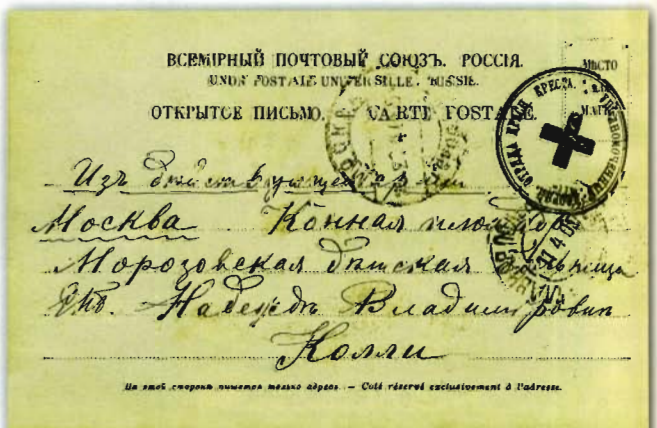 ВСЕМІРНЫЙ ПОЧТОВЫЙ СОЮЗЪ. РОССІЯ.
UNION POSTALE UNIVERSELLE. RUSSIE.
МѢСТО
ОТКРЫТОЕ ПИСЬМО. CARTE POSTALE.
МАР
КРАСН. КРЕСТА.
ОТРЯДА
Изъ действующей арміи
Москва. Конная площадь
Морозовская дѣтская больница
Надеждѣ Владимировнѣ
Колли
На этой сторонѣ пишется только адресъ. — Coté réservé exclusivement à l'adresse.